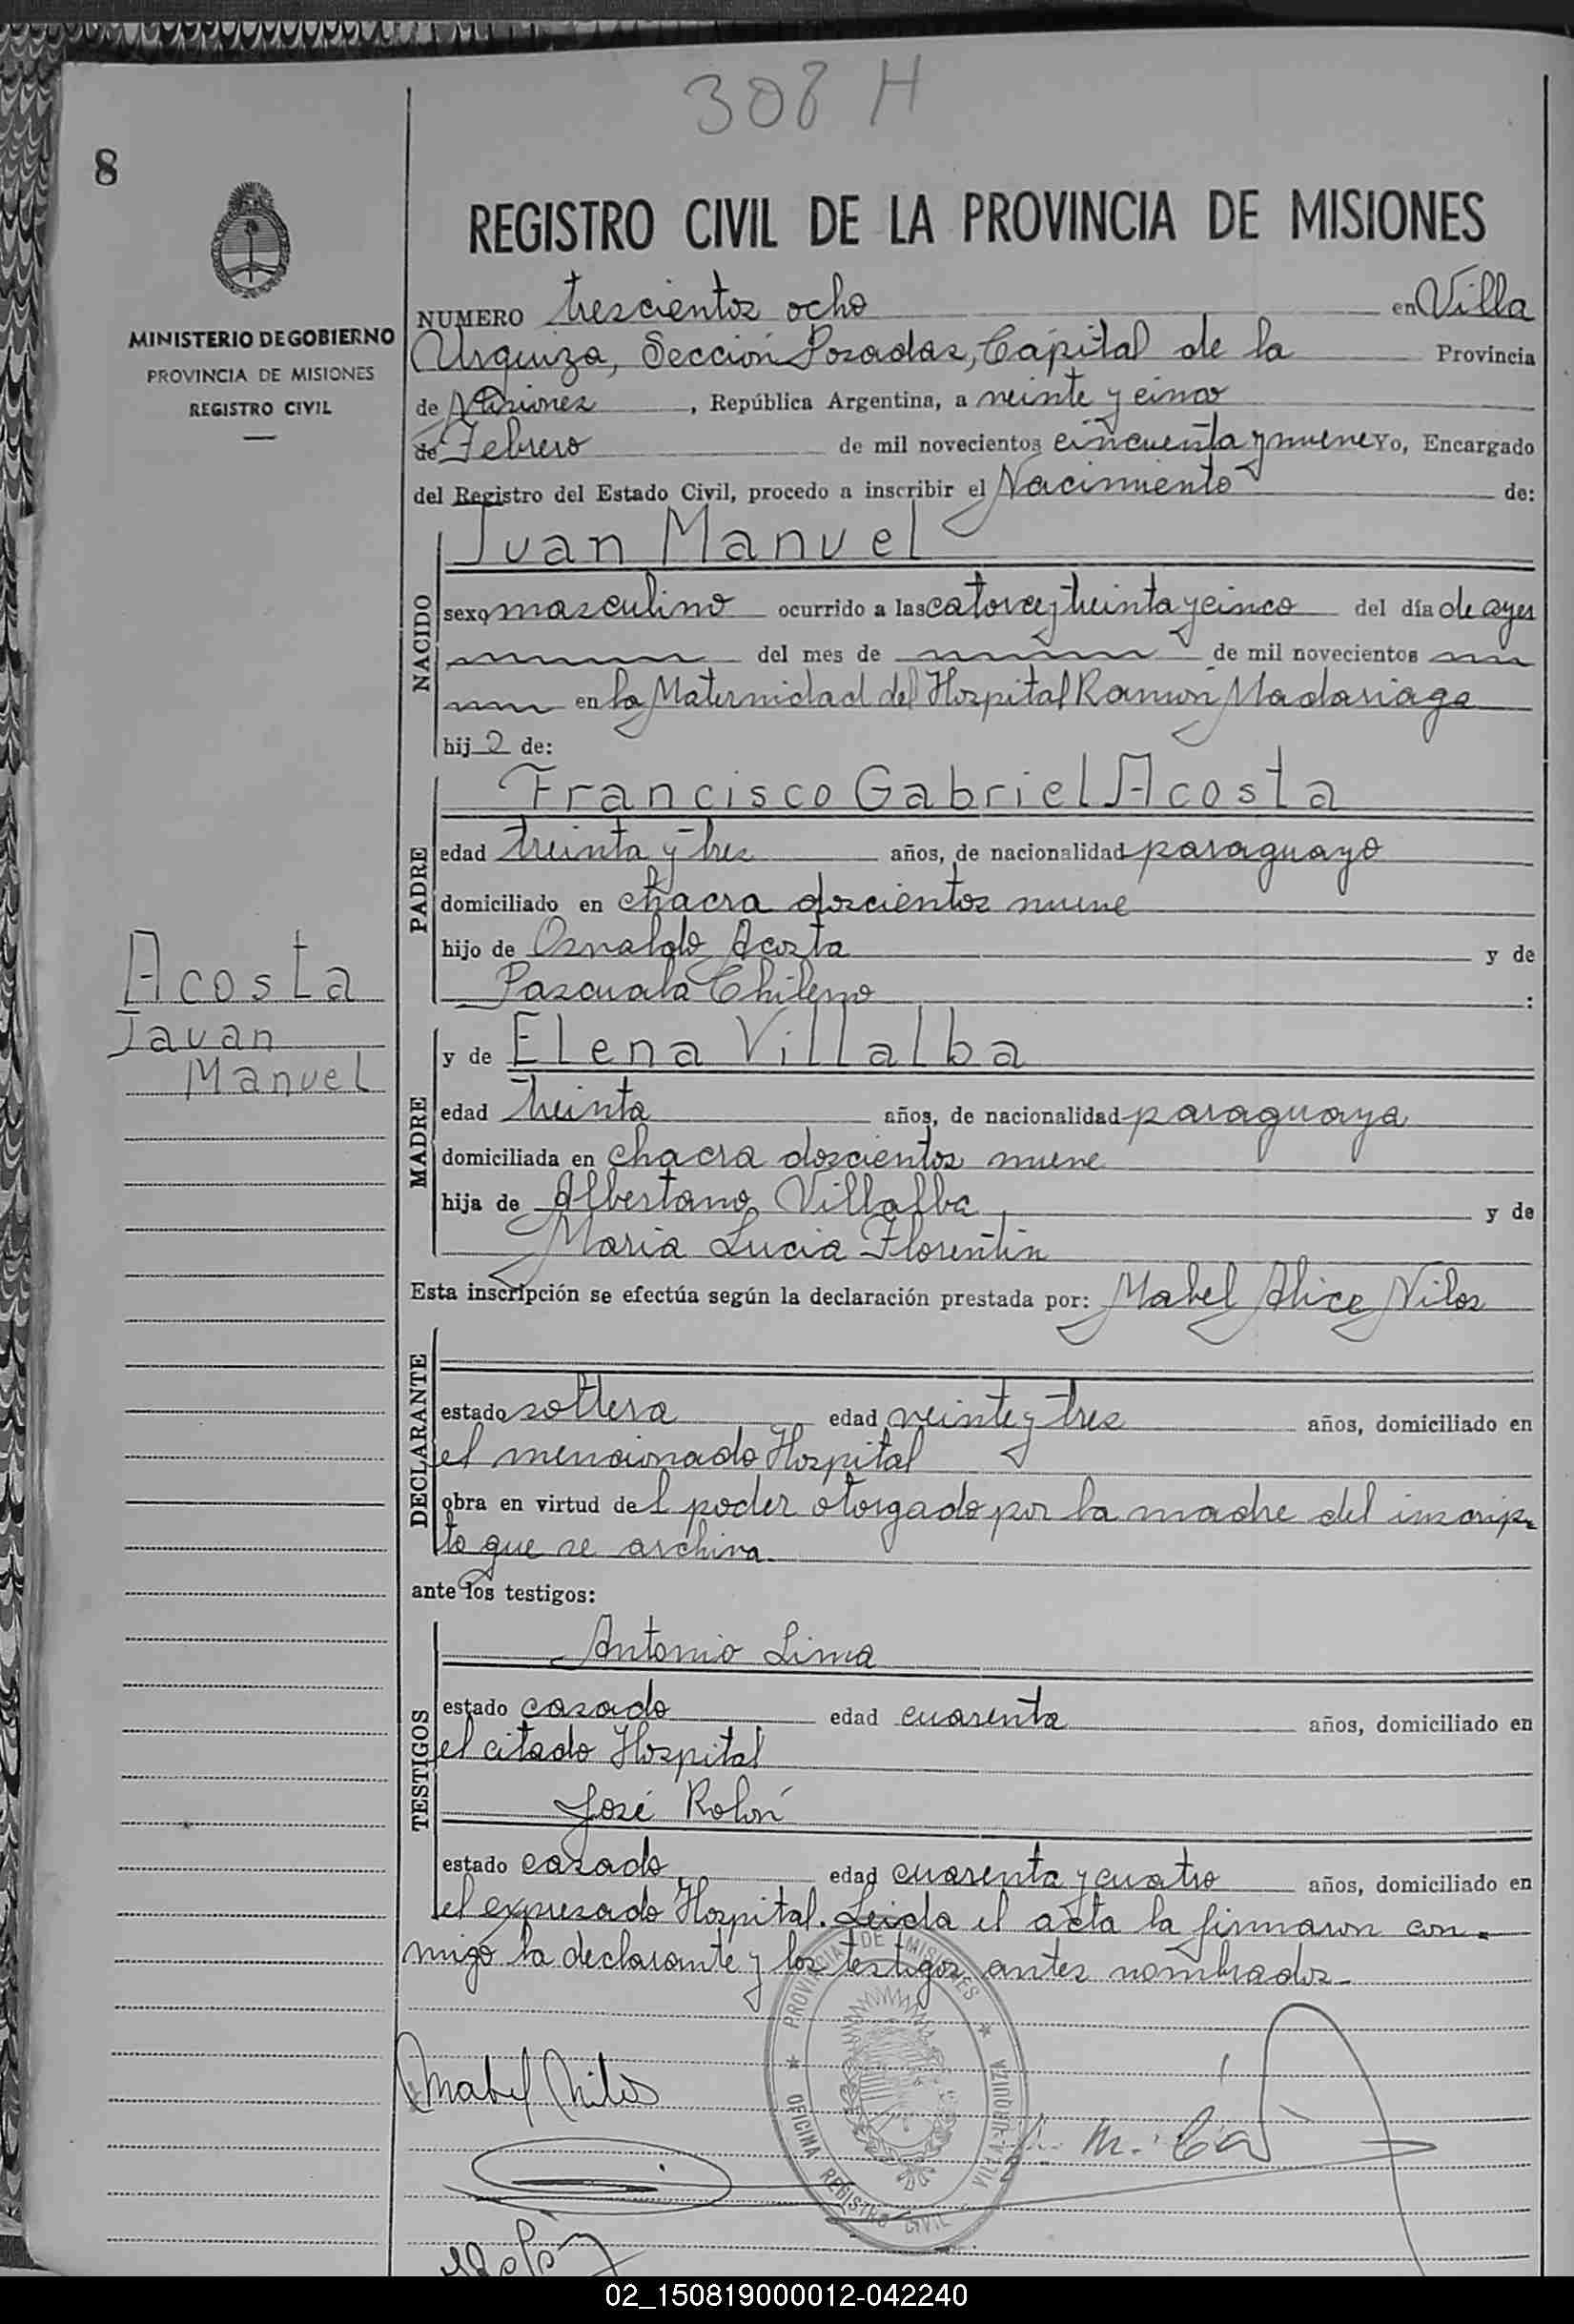 308 H
8
REGISTRO CIVIL DE LA PROVINCIA DE MISIONES
MINISTERIO DE GOBIERNO
PROVINCIA DE MISIONES
REGISTRO CIVIL
NUMERO trescientos ocho en Villa
Urquiza, Sección Posadas, Cápital de la Provincia
de Misiones, República Argentina, a veinte y cinco
de Febrero de mil novecientos cincuenta y nueve Yo, Encargado
del Registro del Estado Civil, procedo a inscribir el Nacimiento de:
NACIDO
Juan Manuel
sexo masculino ocurrido a las catorce y treinta y cinco del día de ayer
del mes de de mil novecientos
en la Maternidad del Hospital Ramón Madariaga
hij o de:
PADRE
Francisco Gabriel Acosta
edad treinta y tres años, de nacionalidad paraguayo
domiciliado en chacra doscientos nueve
hijo de Osvaldo Acosta y de
Pascuala Chileno :
Acosta
Jauan
Manuel
MADRE
y de Elena Villalba
edad treinta años, de nacionalidad paraguaya
domiciliada en chacra doscientos nueve
hija de Albertano Villalba y de
Maria Lucia Florentin
Esta inscripción se efectúa según la declaración prestada por: Mabel Alice Nilos
DECLARANTE
estado soltera edad veinte y tres años, domiciliado en
el mencionado Hospital
obra en virtud de l poder otorgado por la madre del inscrip-
to que se archiva.
ante los testigos:
TESTIGOS
Antonio Lima
estado casado edad cuarenta años, domiciliado en
el citado Hospital
José Rolón
estado casado edad cuarenta y cuatro años, domiciliado en
el expresado Hospital. Leida el acta la firmaron con-
migo la declarante y los testigos antes nombrados.
PROVINCIA DE MISIONES
OFICINA REGISTRO CIVIL
VILLA URQUIZA
Mabel Nilos
02_150819000012-042240